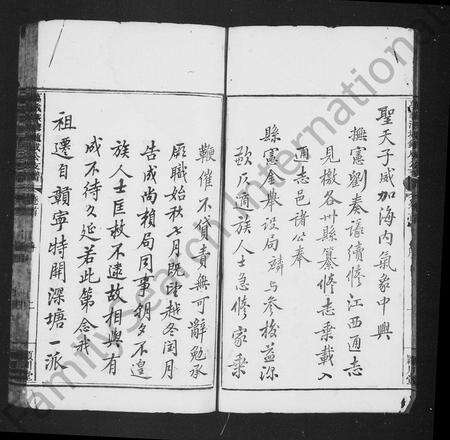 聖天子威加海內氣象中興
撫憲劉奏請續修江西通志
見檄各州縣纂修志乘載入
通志邑諸公奉
縣憲金舉設局 與參校益深
歎反滴族人士急修家乘
鞭催不貸責無可辭勉承
厥職始秋七月旣望越冬閏月
告成尚賴局同事朝夕不遑
族人士匡救不逮故相與有
成不待久延若此第念我
祖遷自贛寧特開深塘一派
FamilySearch International